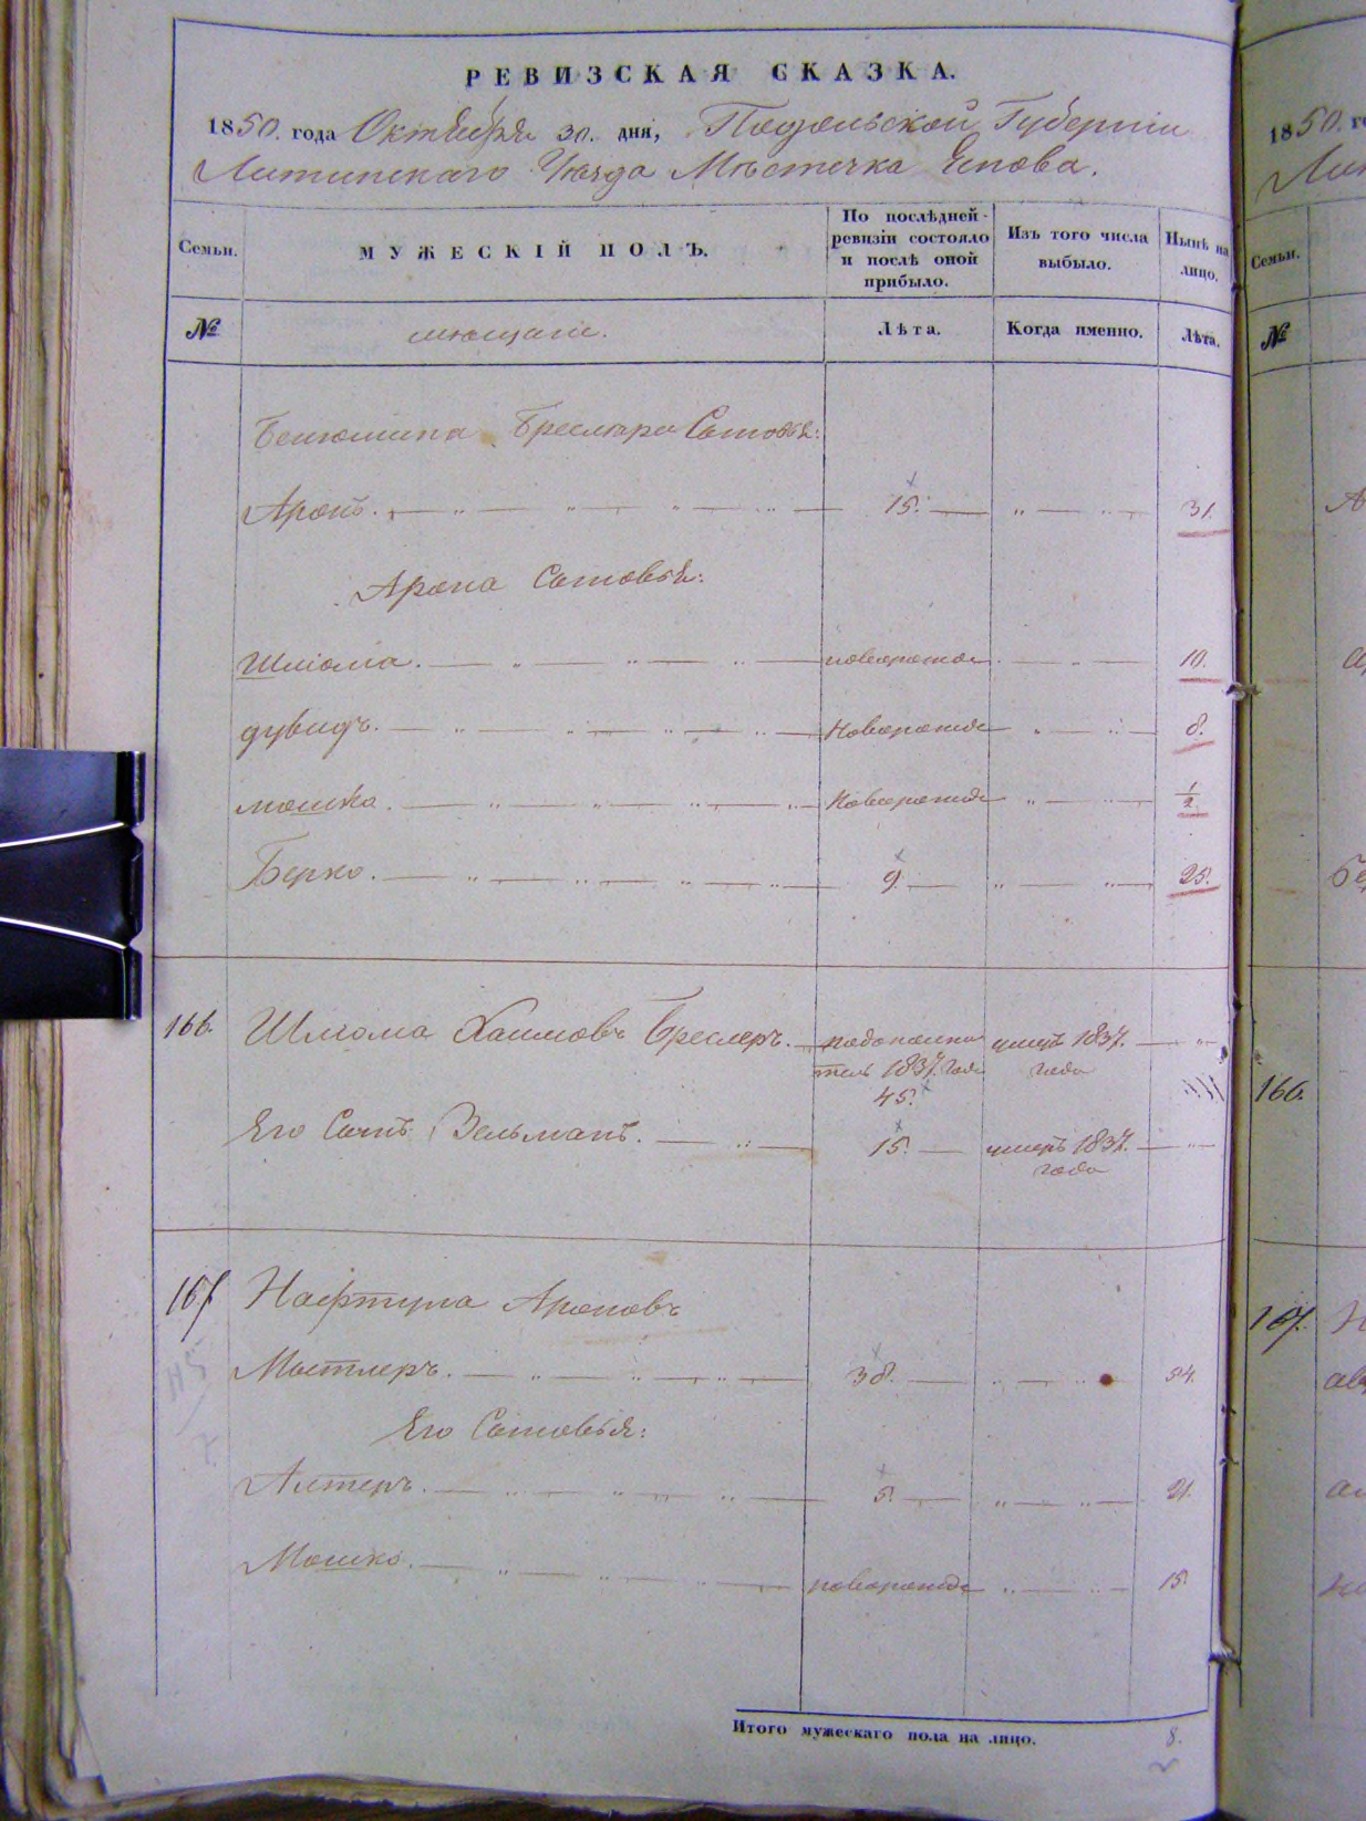 РЕВИЗСКАЯ СКАЗКА.
1850. года Октября 30. дня, Подольской Губернiи
Литинскаго Уѣзда Мѣстечка Енова.
Семьи.
МУЖЕСКIЙ ПОЛЪ.
По послѣдней ревизiи состояло и послѣ оной прибыло.
Изъ того числа выбыло.
Нынѣ на лицо.
№
мѣщане.
Лѣта.
Когда именно.
Лѣта.
Беньомина Бреслера Сыновья:
Аронъ. 15. 31.
Арона Сыновья:
Шлiома. новорожде 10.
дувидъ. Новорожде 8.
мошко. Новорожде 1/2
Берко. 9. 25.
166. Шлiома Хаимовъ Бреслеръ. умеръ 1837.
1837. года года
45.
Его Сынъ Зельманъ. 15. умеръ 1837.
года
167 Нафтула Ароновъ
38. 54.
Его Сыновья:
Алтеръ. 5. 21.
Мошко. новорожде 15.
Итого мужескаго пола на лицо. 8.
1850. г
Семьи.
№
166.
167.